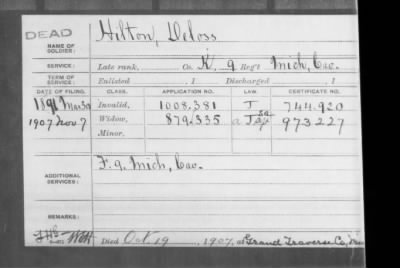 DEAD
NAME OF SOLDIER: Hilton, Deloss
SERVICE: Late rank, Co. K, 9 Reg't Mich, Cav.
TERM OF SERVICE: Enlisted , 1 Discharged , 1
DATE OF FILING. CLASS. APPLICATION NO. LAW. CERTIFICATE NO.
1891 Mar 30 Invalid, 1008.381 J 744.920
1907 Nov 7 Widow, 879.335 973227
Minor.
ADDITIONAL SERVICES: F. 9. Mich, Cav.
REMARKS:
Died Oct. 19, 1907, at Grand Traverse Co,